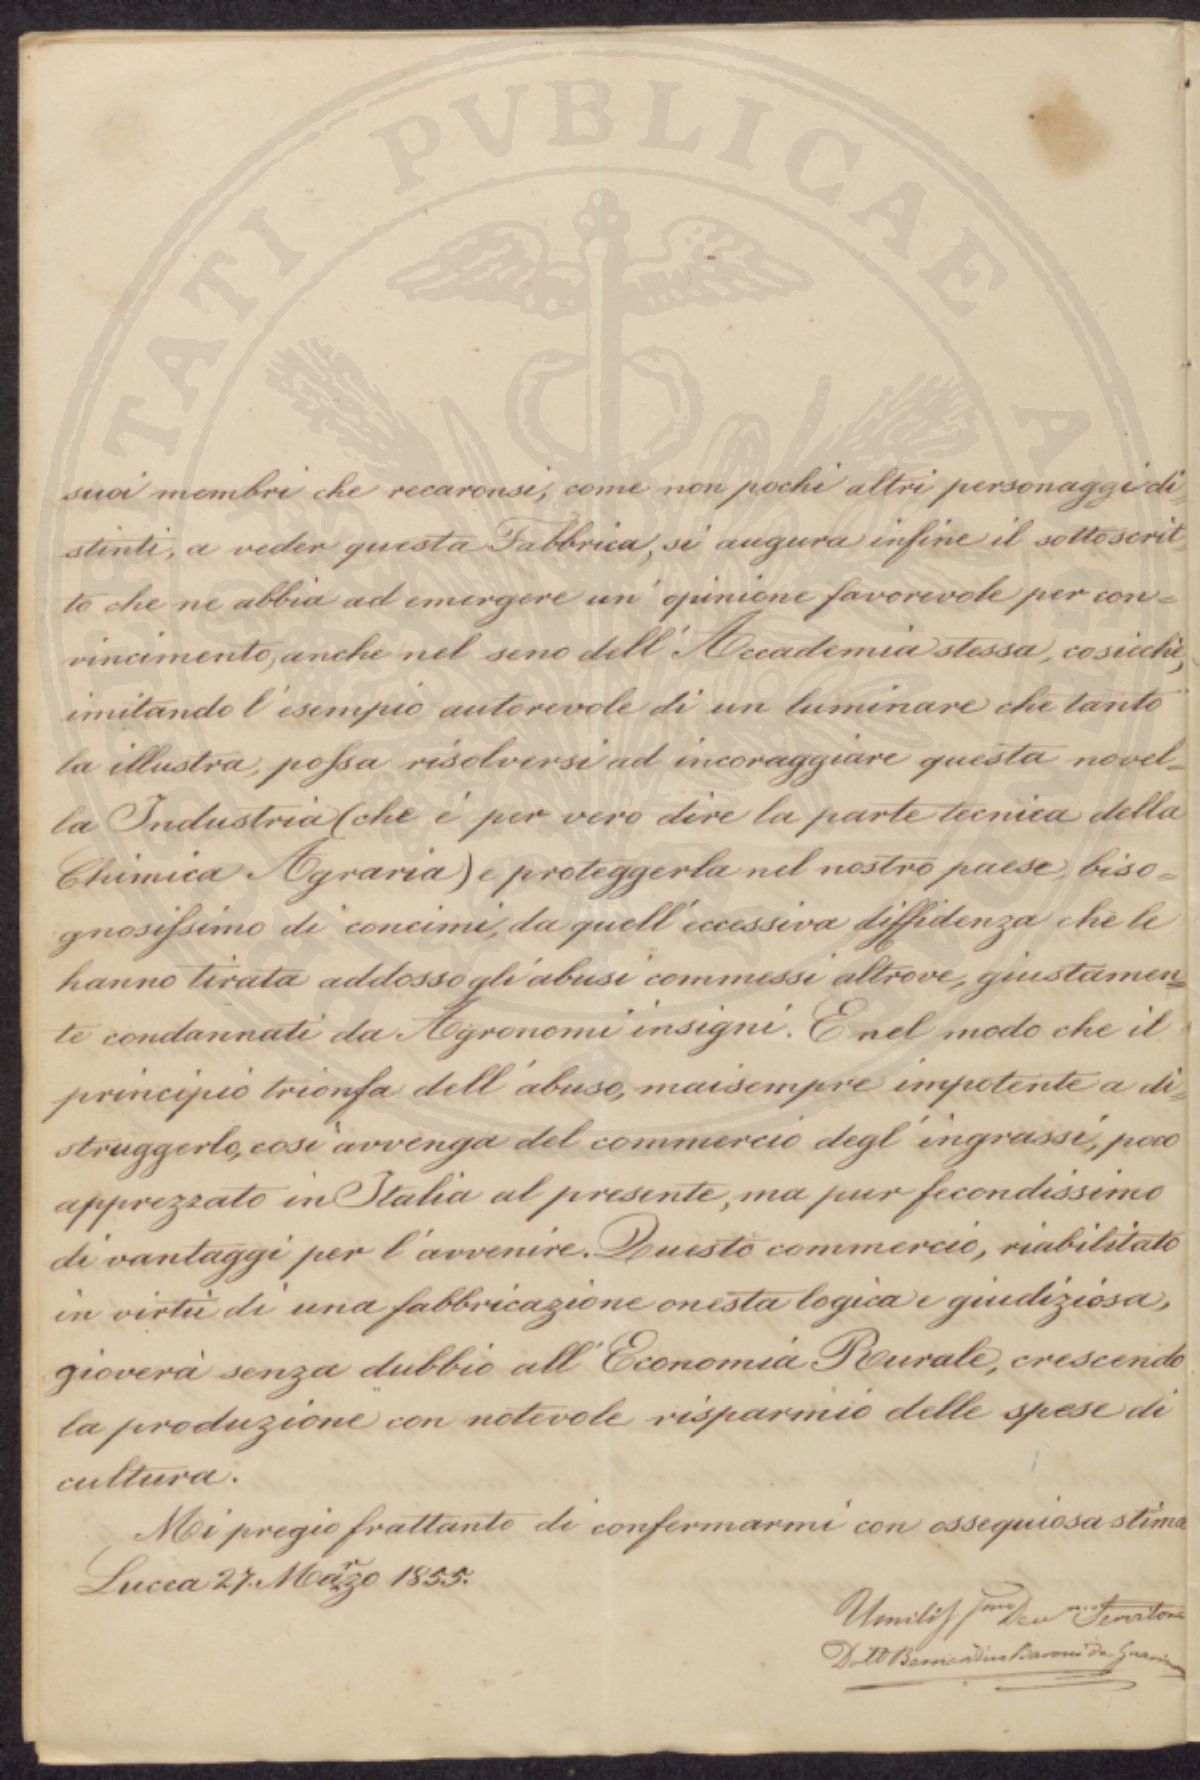 PROSPERITATI PVBLICAE AVGENDAE
suoi membri che recaronsi, come non pochi altri personaggi di=
stinti, a veder questa Fabbrica, si augura infine il sottoscrit=
to che ne abbia ad emergere un' opinione favorevole per con=
vincimento, anche nel seno dell' Accademia stessa, cosicchè,
imitando l' esempio autorevole di un luminare che tanto
la illustra, possa risolversi ad incoraggiare questa novel=
la Industria (che è per vero dire la parte tecnica della
Chimica Agraria) e proteggerla nel nostro paese, biso=
gnosissimo di concimi, da quell' eccessiva diffidenza che le
hanno tirata addosso gli abusi commessi altrove, giustamen=
te condannati da Agronomi insigni. E nel modo che il
principio trionfa dell' abuso, maisempre impotente a di=
struggerlo, così avvenga del commercio degl' ingrassi, poco
apprezzato in Italia al presente, ma pur fecondissimo
di vantaggi per l' avvenire. Questo commercio, riabilitato
in virtù di una fabbricazione onesta logica e giudiziosa,
gioverà senza dubbio all' Economia Rurale, crescendo
la produzione con notevole risparmio delle spese di
cultura.
Mi pregio frattanto di confermarmi con ossequiosa stima
Lucca 27. Marzo 1855.
Umiliss.mo Dev.mo Servitore
Dott Bernardino Baroni